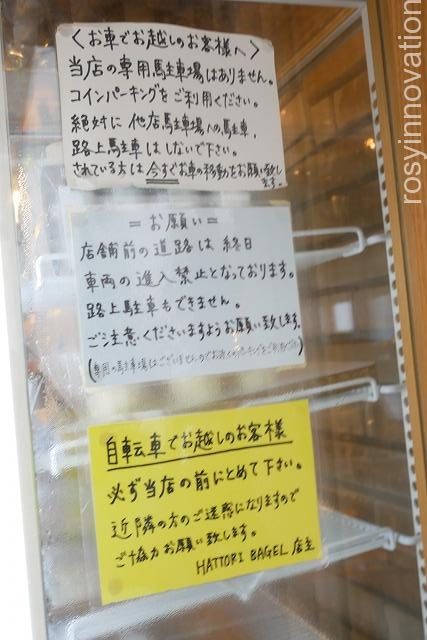 〈お車でお越しのお客様へ〉
当店の専用駐車場はありません。
コインパーキングをご利用ください。
絶対に他店駐車場への駐車、
路上駐車はしないで下さい。
されている方は今すぐお車の移動をお願い致し
ます。
＝お願い＝
店舗前の道路は終日
車両の進入禁止となっております。
路上駐車もできません。
ご注意くださいますようお願い致します。
(専用の駐車場はございませんのでお近くのパーキングをご利用ください)
自転車でお越しのお客様
必ず当店の前にとめて下さい。
近隣の方のご迷惑になりますので
ご協力お願い致します。
HATTORI BAGEL 店主
rosyinnovation